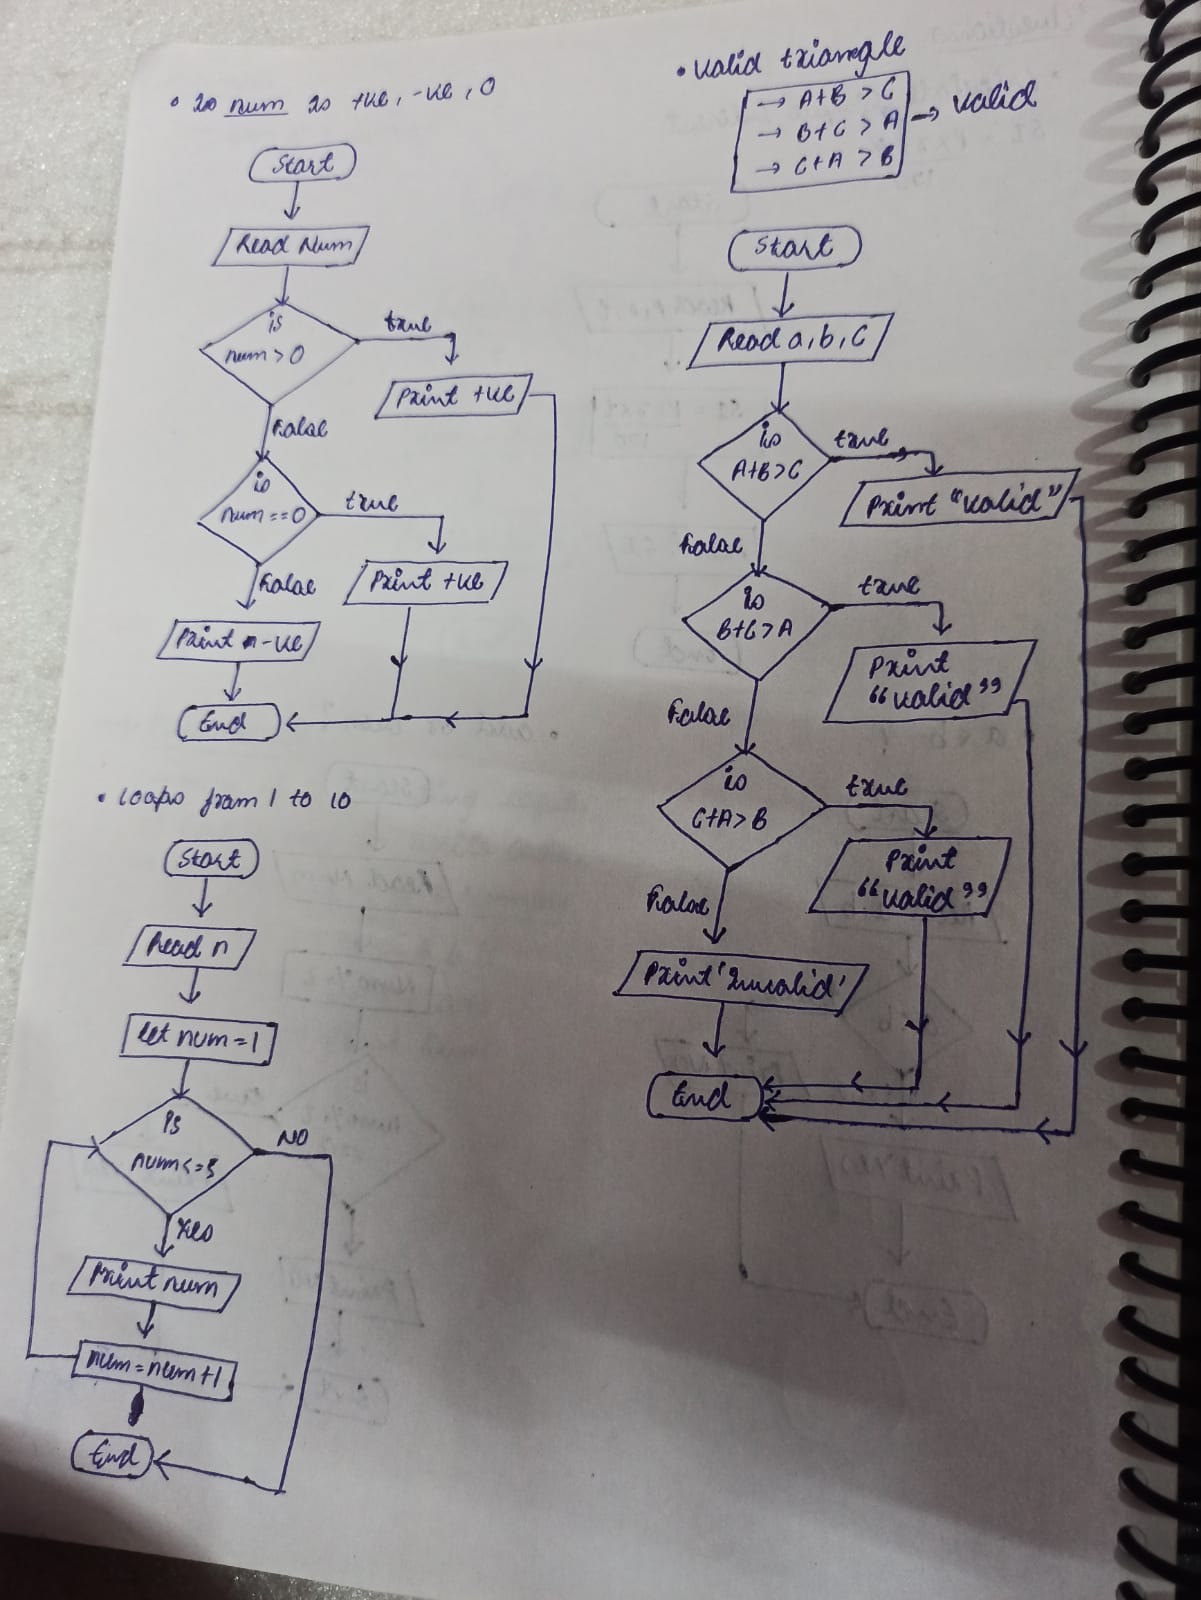 • Is num is +ve, -ve, 0
Start
Read Num
is
num > 0
true
Print +ve
False
is
num == 0
true
Print +ve
False
Print -ve
End
• Loops from 1 to 10
Start
Read n
let num = 1
Is
num <= 5
NO
Yes
Print num
num = num + 1
End
• Valid triangle
→ A+B > C
→ B+C > A
→ C+A > B
→ Valid
Start
Read a, b, c
is
A+B>C
true
Print "Valid"
False
is
B+C>A
true
Print
"Valid"
False
is
C+A>B
true
Print
"Valid"
False
Print 'Invalid'
End